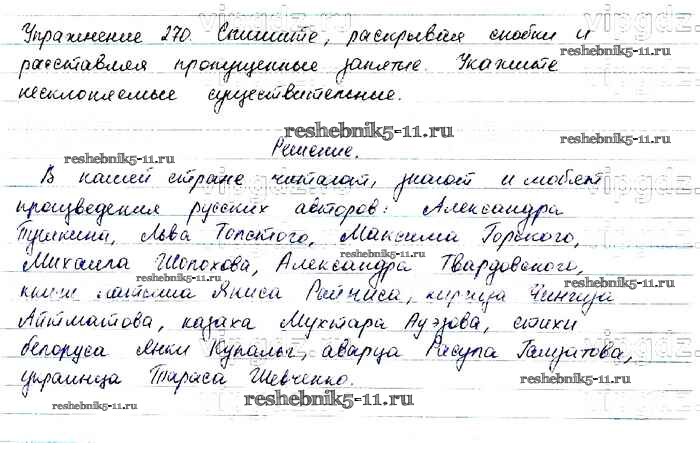 Упражнение 270. Спишите, раскрывая скобки и
расставляя пропущенные запятые. Укажите
несклоняемые существительные.
reshebnik5-11.ru
reshebnik5-11.ru
reshebnik5-11.ru
Решение.
В нашей стране читают, знают и любят
произведения русских авторов: Александра
Пушкина, Льва Толстого, Максима Горького,
Михаила Шолохова, Александра Твардовского,
книги латыша Яниса Райниса, киргиза Чингиза
Айтматова, казаха Мухтара Ауэзова, стихи
белоруса Янки Купалы, аварца Расула Гамзатова,
украинца Тараса Шевченко.
reshebnik5-11.ru
reshebnik5-11.ru
reshebnik5-11.ru
reshebnik5-11.ru
reshebnik5-11.ru
reshebnik5-11.ru
reshebnik5-11.ru